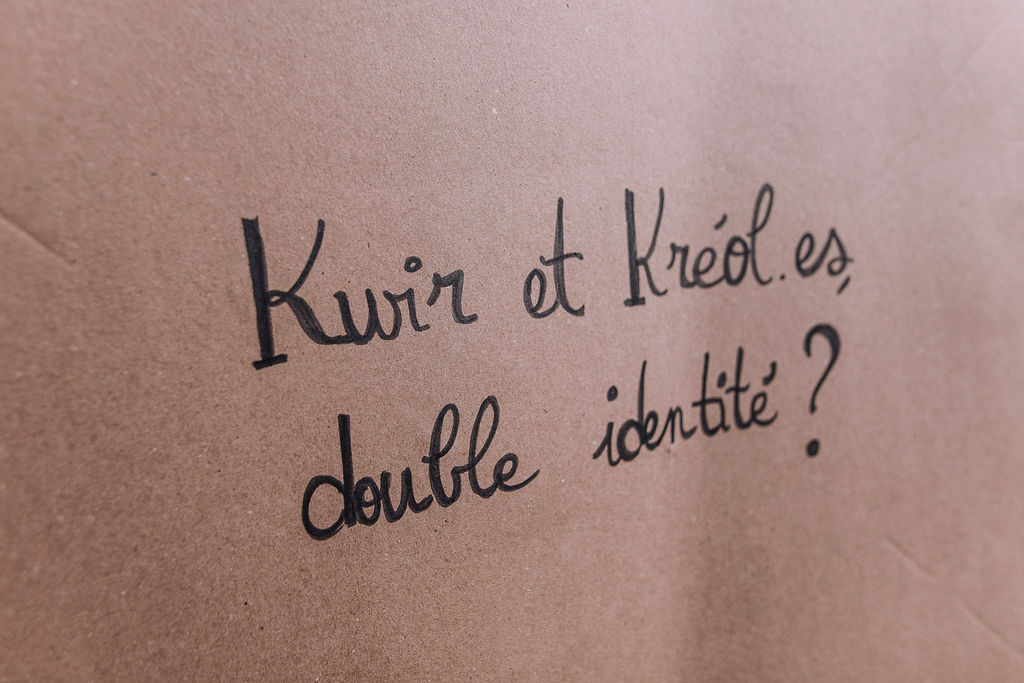 Kwir et Kréol.es,
double identité ?